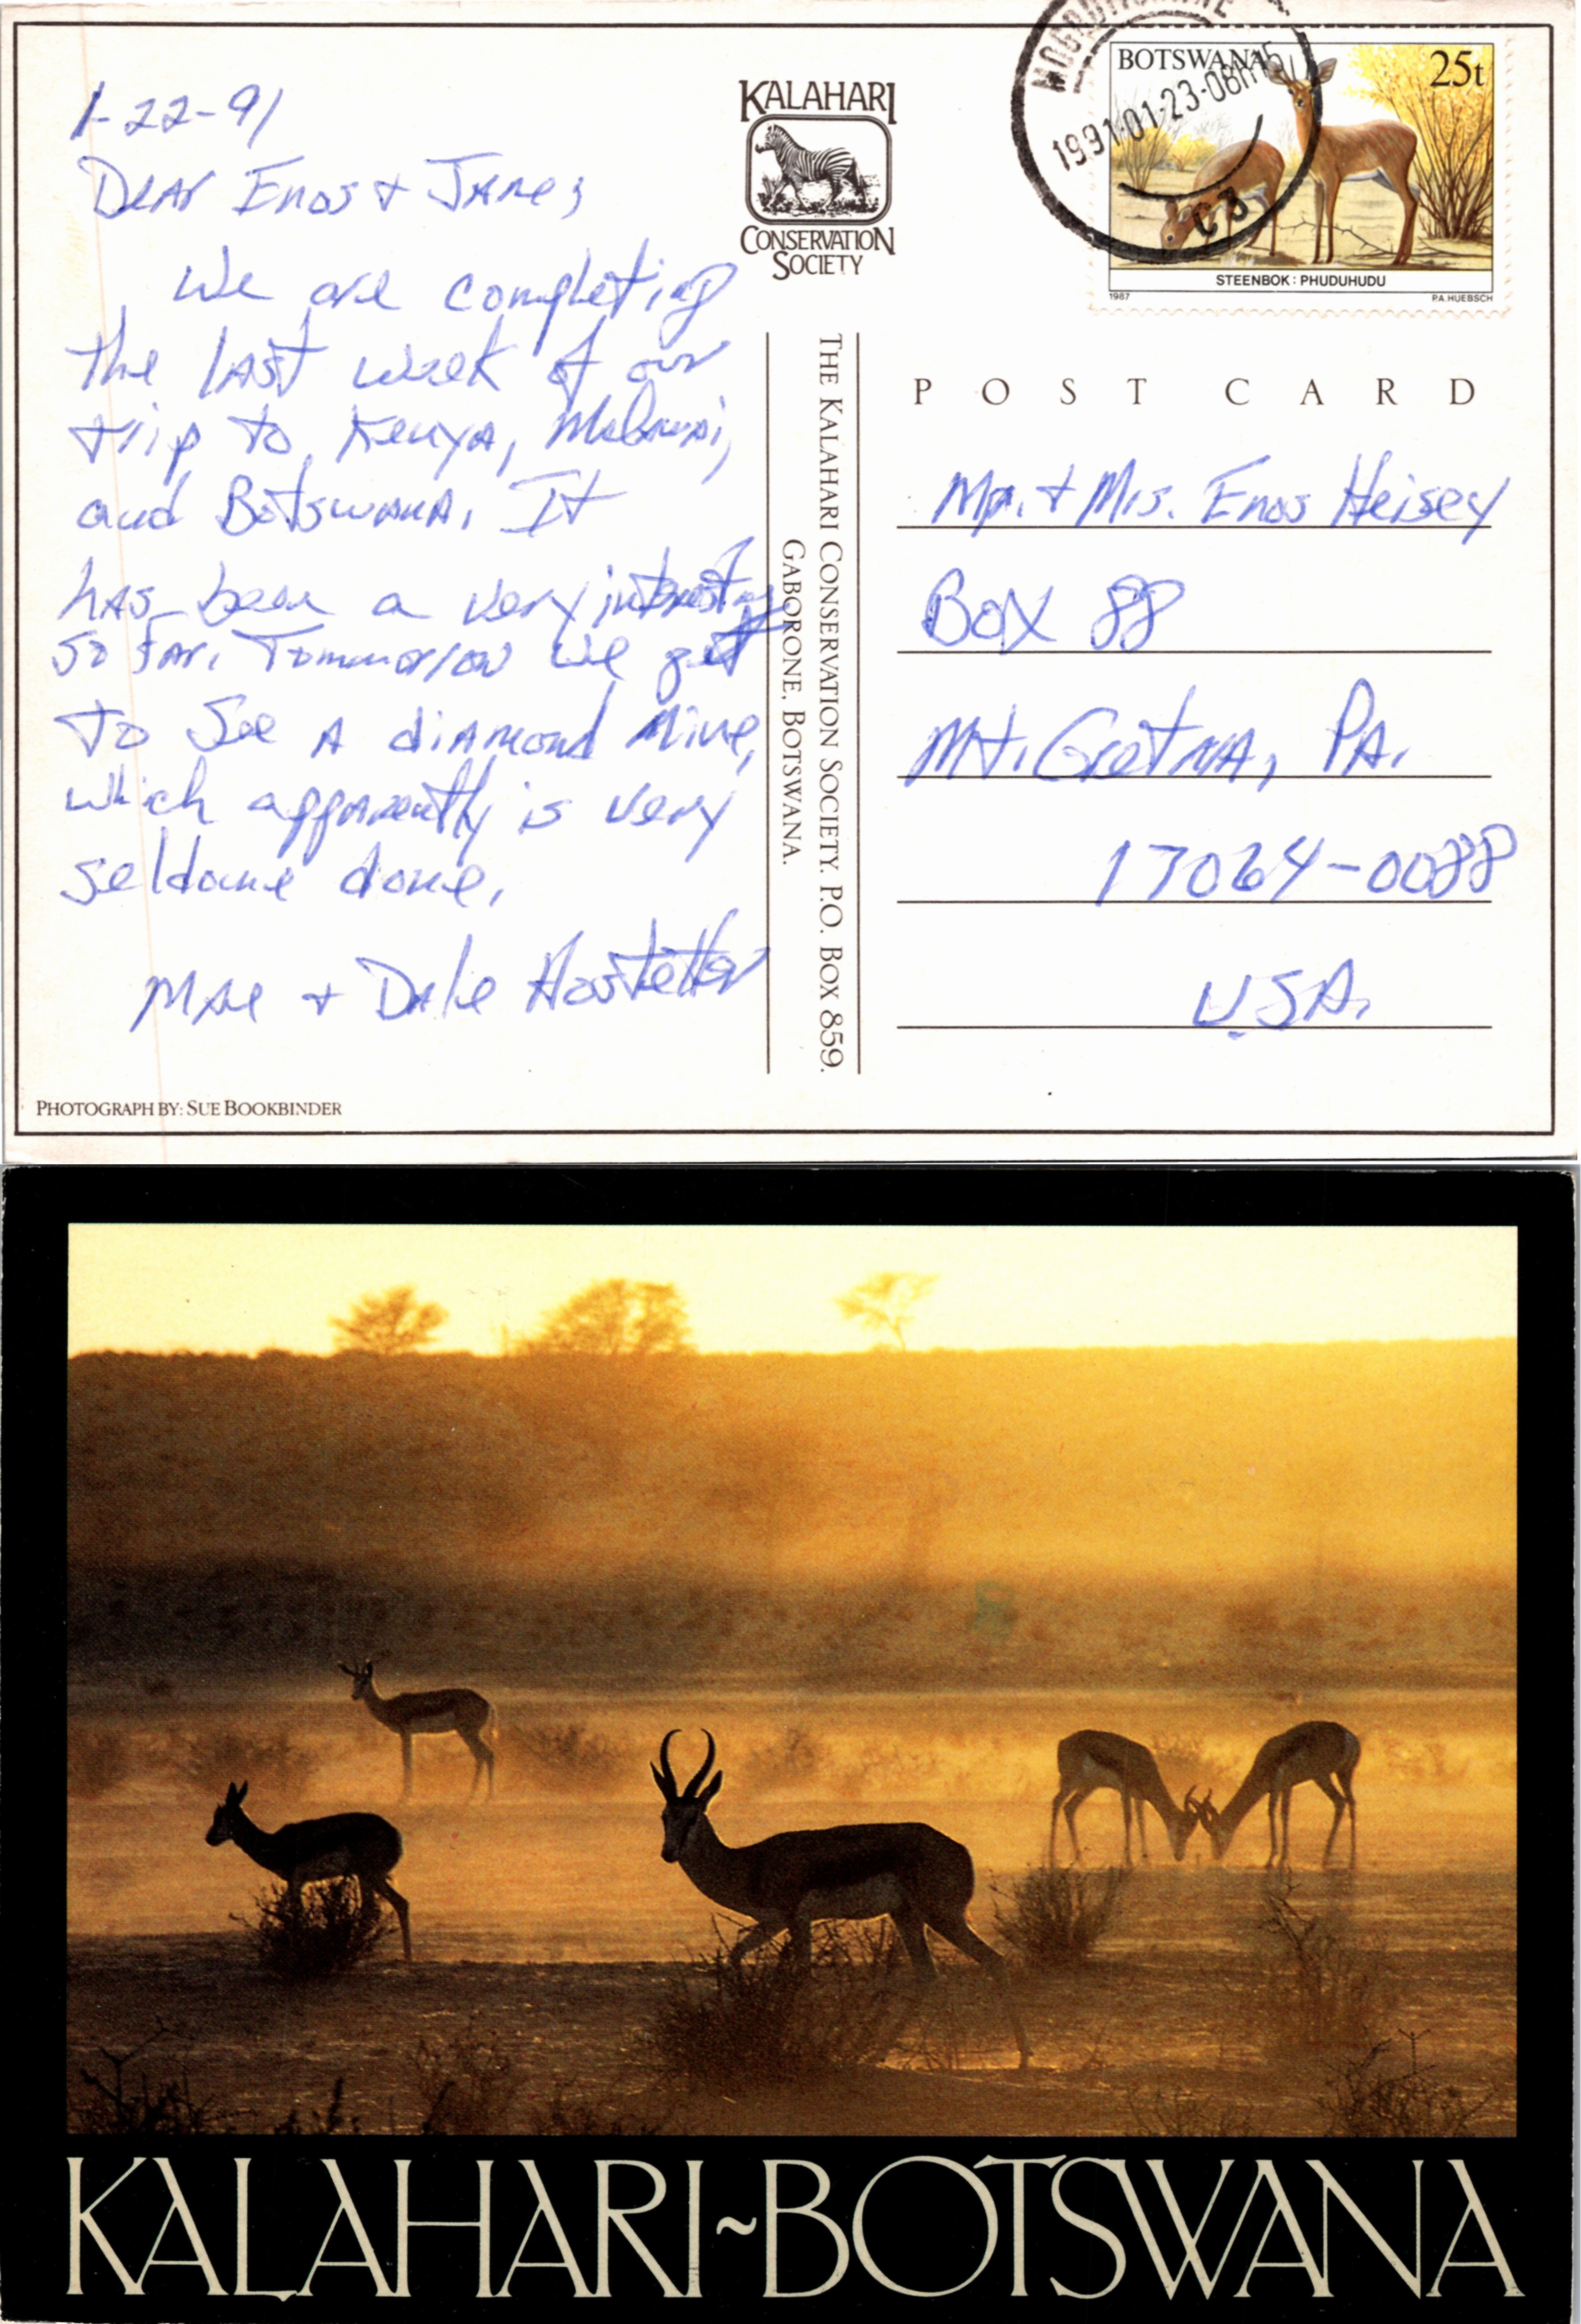 1-22-91
Dear Enos & Jane,
We are completing
the last week of our
trip to Kenya, Malawi,
and Botswana. It
has been a very interesting
so far. Tommorrow we get
to see a diamond mine,
which apparently is very
seldome done.
Mae & Dale Hostetter
PHOTOGRAPH BY: SUE BOOKBINDER
KALAHARI
CONSERVATION
SOCIETY
THE KALAHARI CONSERVATION SOCIETY. P.O. BOX 859.
GABORONE. BOTSWANA.
1991-01-23-08h15
C3
BOTSWANA
25t
STEENBOK : PHUDUHUDU
1987
P.A. HUEBSCH
POST CARD
Mr. & Mrs. Enos Heisey
Box 88
Mt. Gretna, PA.
17064-0088
U.S.A.
KALAHARI~BOTSWANA